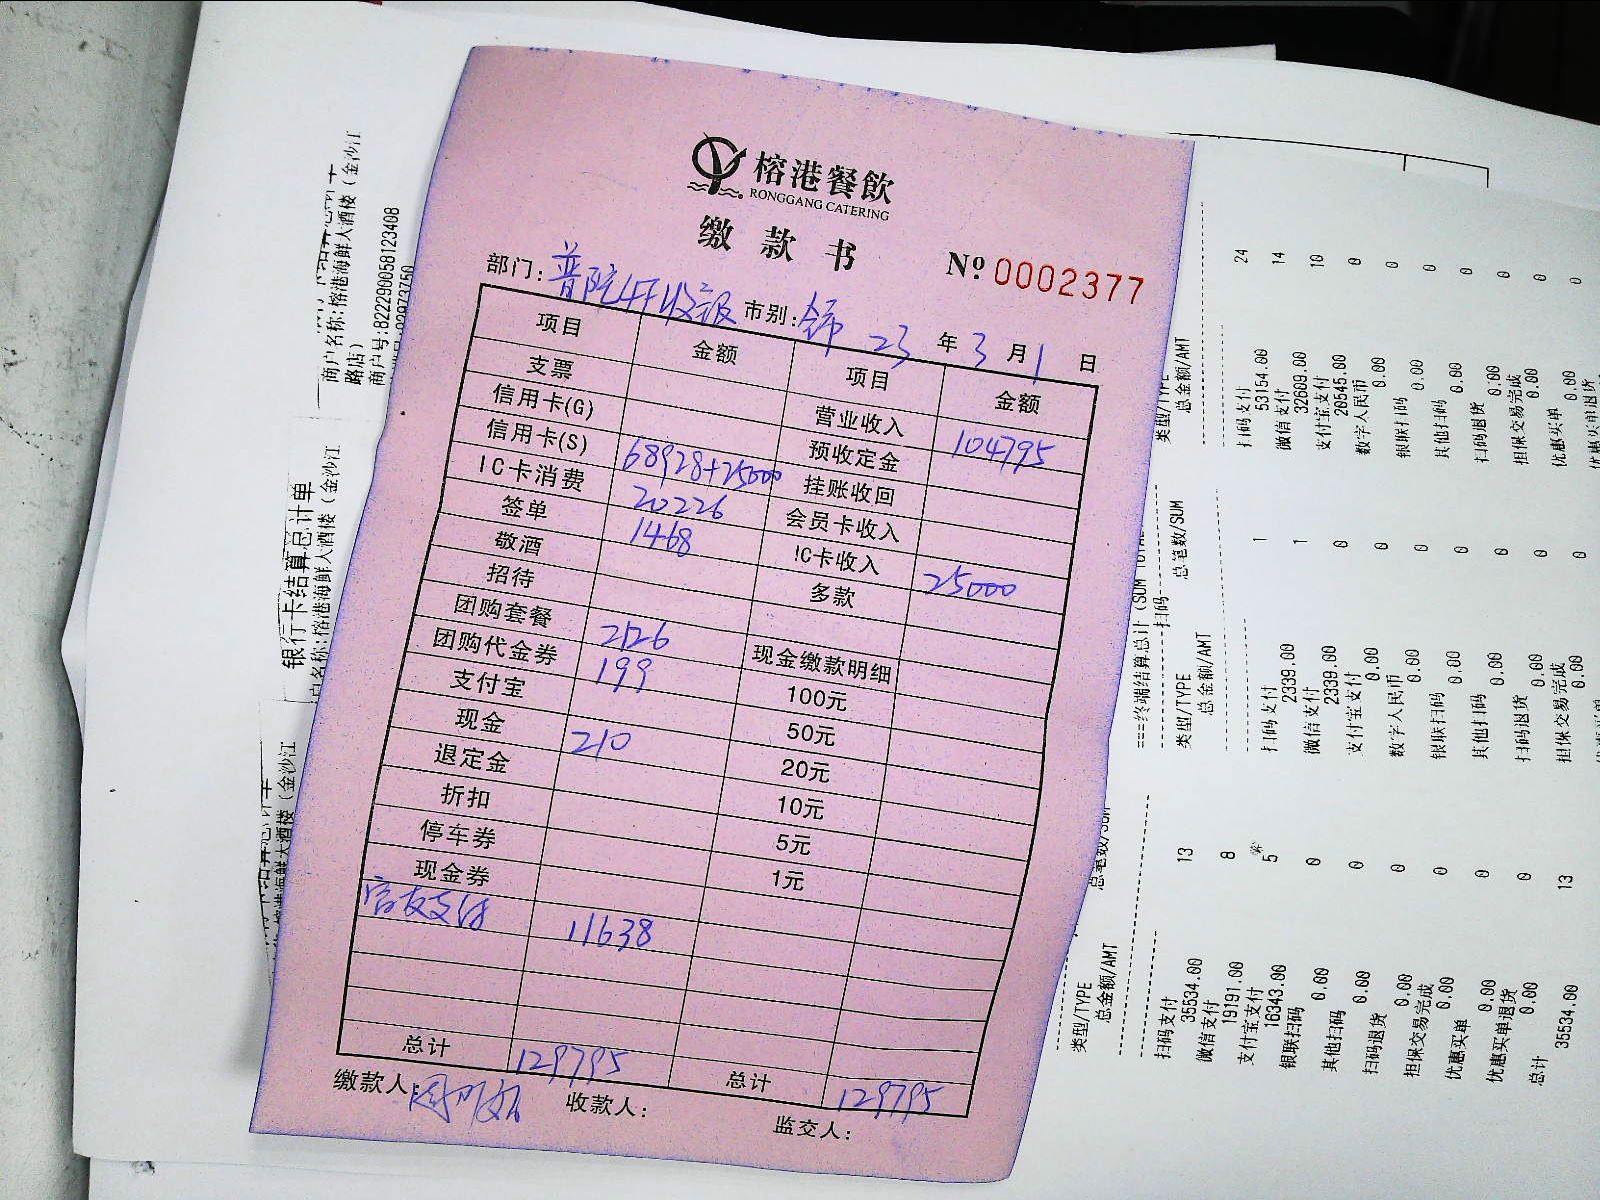 榕港餐飲
RONGGANG CATERING
缴款书
№ 0002377
部门: 普陀4F收银 市别: 全市 23 年 3 月 1 日
项目 金额 项目 金额
支票 营业收入 104795
信用卡(G) 预收定金
信用卡(S) 68928+25000 挂账收回
IC卡消费 20226 会员卡收入
签单 1468 IC卡收入 25000
敬酒 多款
招待
团购套餐 2126 现金缴款明细
团购代金券 199 100元
支付宝 50元
现金 210 20元
退定金 10元
折扣 5元
停车券 1元
现金券
11638
总计 129795 总计 129795
缴款人: 收款人: 监交人:
商户名称:榕港海鲜大酒楼(金沙江
路店)
商户号:822290058123408
银行卡结算总计单
户名称:榕港海鲜大酒楼(金沙江
类型/TYPE
总金额/AMT
扫码支付 24
53154.00
微信支付 14
32609.00
支付宝支付 10
20545.00
数字人民币 0
0.00
银联扫码 0
0.00
其他扫码 0
0.00
扫码退货 0
0.00
担保交易完成 0
0.00
优惠买单 0
0.00
===终端结算总计(SUM TOTAL
扫码
类型/TYPE 总笔数/SUM
总金额/AMT
扫码支付 1
2339.00
微信支付 1
2339.00
支付宝支付 0
0.00
数字人民币 0
0.00
银联扫码 0
0.00
其他扫码 0
0.00
扫码退货 0
0.00
担保交易完成 0
0.00
类型/TYPE 总笔数/SUM
总金额/AMT
扫码支付 13
35534.00
微信支付 8
19191.00
支付宝支付 5
16343.00
银联扫码 0
0.00
其他扫码 0
0.00
扫码退货 0
0.00
担保交易完成 0
0.00
优惠买单 0
0.00
优惠买单退货 0
0.00
总计 13
35534.00